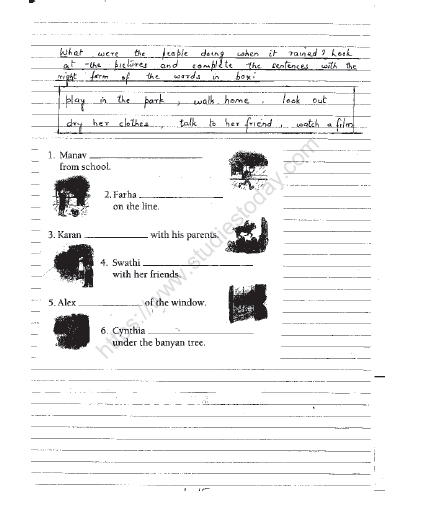 What were the people doing when it rained? Look
at the pictures and complete the sentences with the
right form of the words in box:
play in the park, walk home, look out
dry her clothes, talk to her friend, watch a film
1. Manav
from school.
2. Farha
on the line.
3. Karan with his parents.
4. Swathi
with her friends.
5. Alex of the window.
6. Cynthia
under the banyan tree.
https://www.studiestoday.com